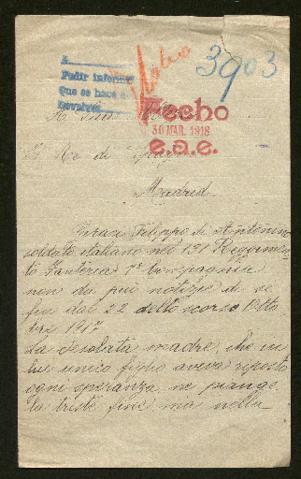 A
Pedir inform
Que se hace
Devolver
3903
Fecho
30 MAR. 1918
e.a.e.
A Sua
Il Re di
Madrid
Geraci Filippo di Antonino
soldato italiano nel 131 Reggimen-
to Fanteria 1a Compagnia
non da più notizie di se
fin dal 22 dello scorso Otto
bre 1917
La desolata madre, che in
lui unico figlio aveva riposto
ogni speranza, ne piange
la triste fine ma nella